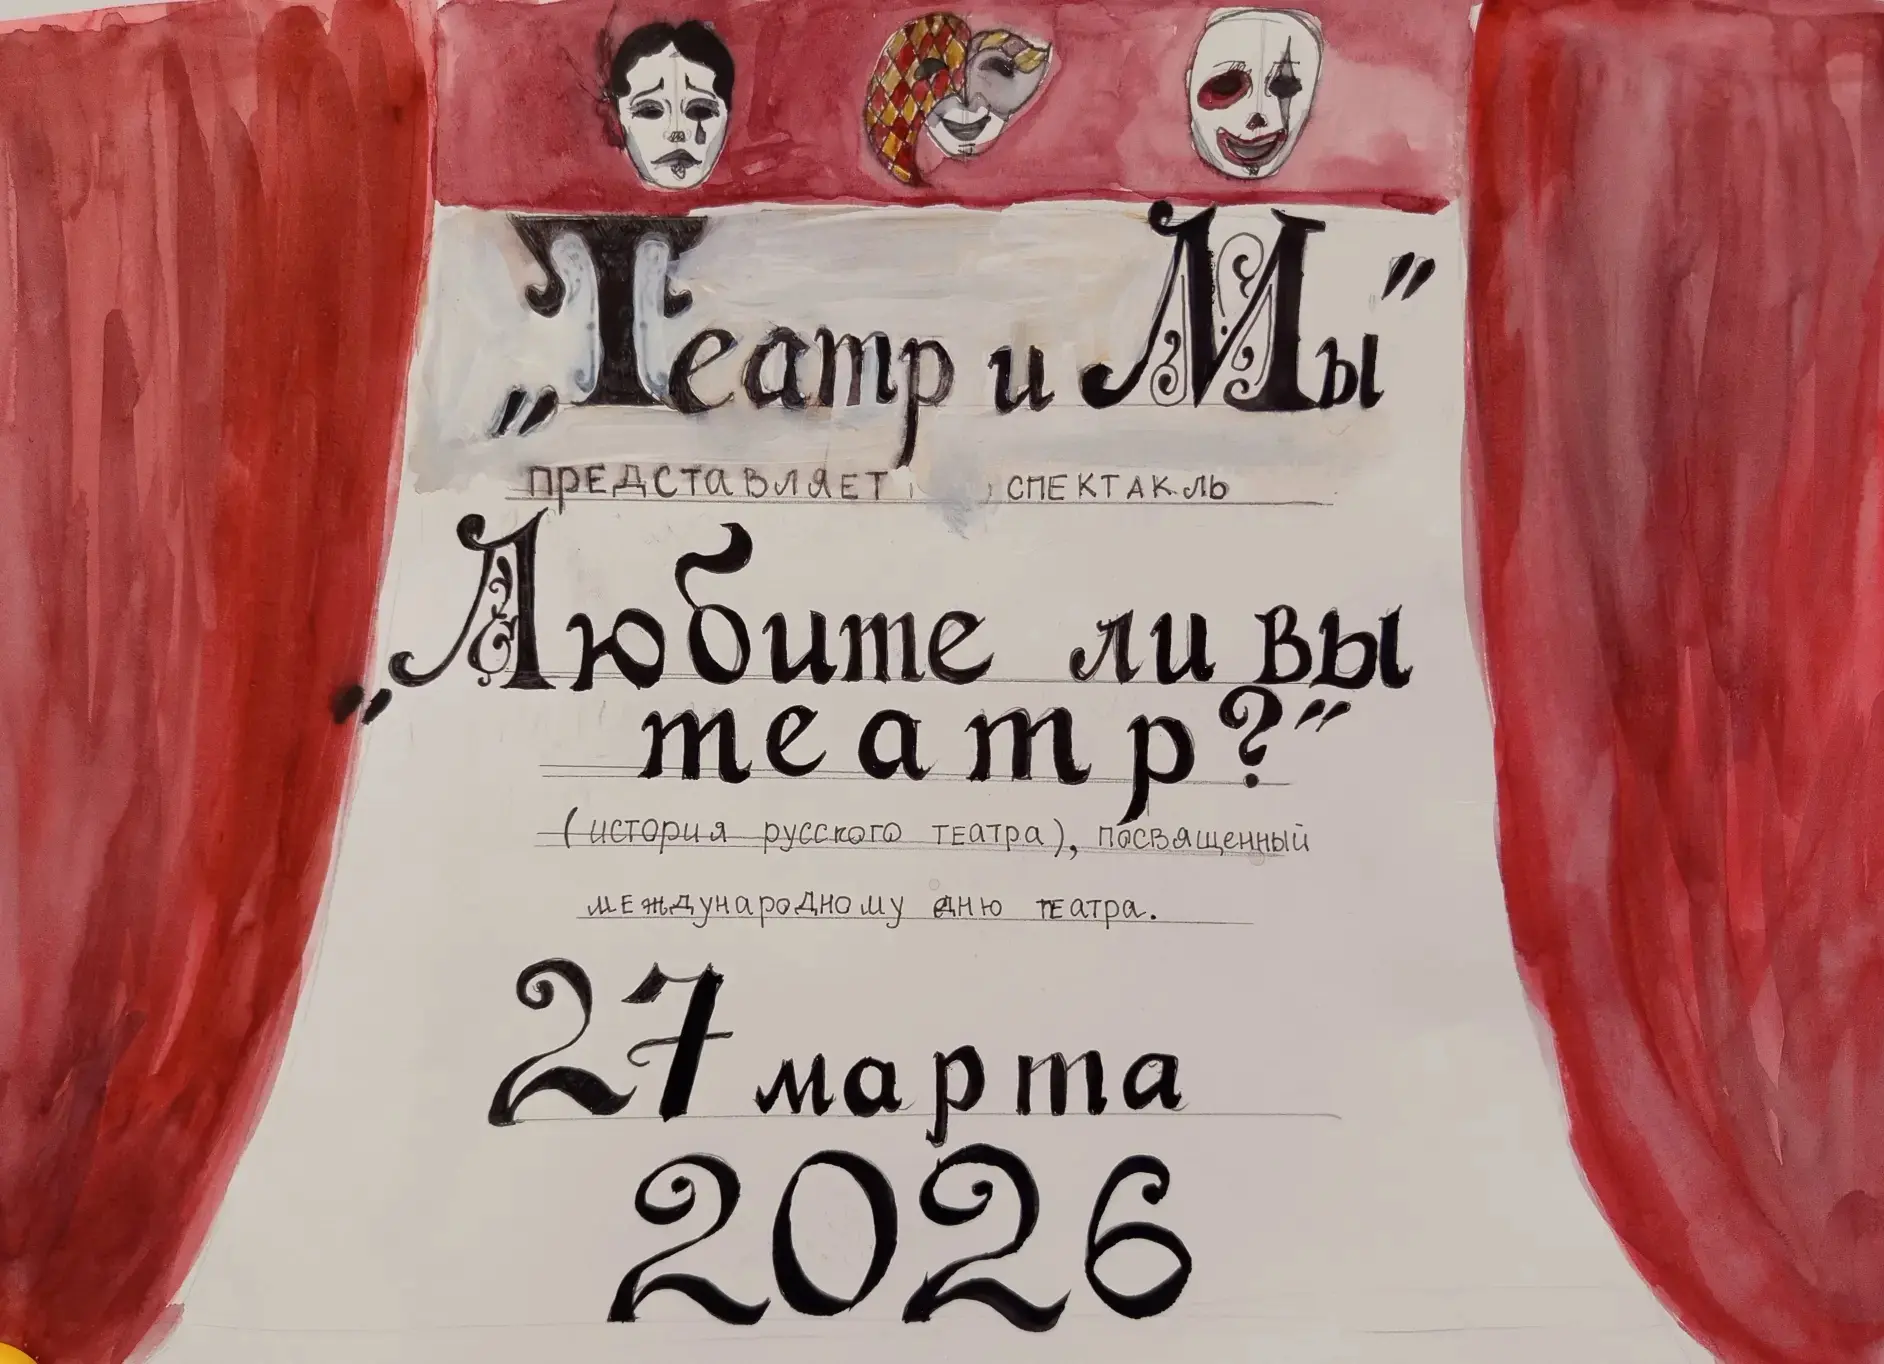 „Театр и Мы"
ПРЕДСТАВЛЯЕТ СПЕКТАКЛЬ
„Любите ли вы
театр?"
(история русского театра), посвященный
международному дню театра.
27 марта
2026